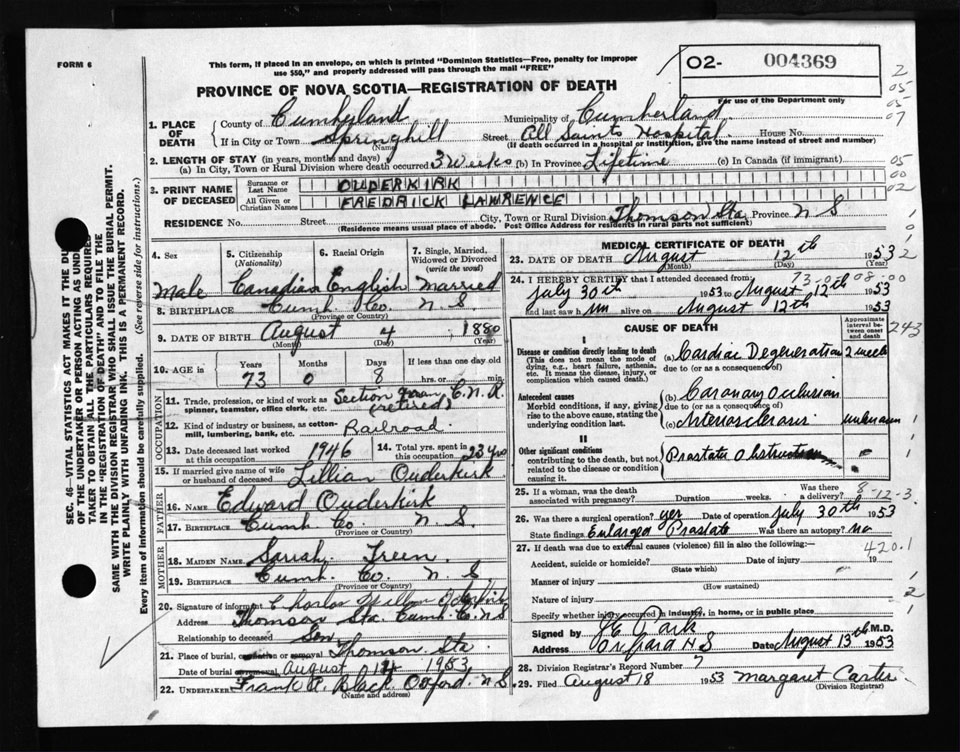 FORM 6
This form, if placed in an envelope, on which is printed "Dominion Statistics—Free, penalty for improper
use $50," and properly addressed will pass through the mail "FREE"
PROVINCE OF NOVA SCOTIA—REGISTRATION OF DEATH
O2- 004369
For use of the Department only
2
05
05
07
05
00
02
SEC. 46—VITAL STATISTICS ACT MAKES IT THE DU
OF THE UNDERTAKER OR PERSON ACTING AS UNDE
TAKER TO OBTAIN ALL THE PARTICULARS REQUIRE
IN THE "REGISTRATION OF DEATH" AND TO FILE THE
SAME WITH THE DIVISION REGISTRAR WHO SHALL ISSUE THE BURIAL PERMIT.
WRITE PLAINLY WITH UNFADING INK. THIS IS A PERMANENT RECORD.
Every item of information should be carefully supplied. (See reverse side for instructions.)
1. PLACE OF DEATH County of Cumberland Municipality of Cumberland
If in City or Town Springhill Street All Saints Hospital House No.
(Name) (If death occurred in a hospital or institution, give the name instead of street and number)
2. LENGTH OF STAY (in years, months and days)
(a) In City, Town or Rural Division where death occurred 3 Weeks (b) In Province Lifetime (c) In Canada (if immigrant)
3. PRINT NAME OF DECEASED Surname or Last Name OUDERKIRK
All Given or Christian Names FREDRICK LAWRENCE
RESIDENCE No. Street City, Town or Rural Division Thomson Sta. Province N S
(Residence means usual place of abode. Post Office Address for residents in rural parts not sufficient)
4. Sex 5. Citizenship (Nationality) 6. Racial Origin 7. Single, Married, Widowed or Divorced (write the word)
Male Canadian English Married
8. BIRTHPLACE Cumb. Co. N. S.
(Province or Country)
9. DATE OF BIRTH August 4 1880
(Month) (Day) (Year)
10. AGE in Years Months Days If less than one day old
73 0 8 hrs. or min.
OCCUPATION
11. Trade, profession, or kind of work as spinner, teamster, office clerk, etc. Section man C.N.R. (retired)
12. Kind of industry or business, as cotton-mill, lumbering, bank, etc. Railroad.
13. Date deceased last worked at this occupation 1946 14. Total yrs. spent in this occupation 23 yrs
15. If married give name of wife or husband of deceased Lillian Ouderkirk
FATHER
16. NAME Edward Ouderkirk
17. BIRTHPLACE Cumb Co. N. S.
(Province or Country)
MOTHER
18. MAIDEN NAME Sarrah Treen
19. BIRTHPLACE Cumb. Co. N. S
(Province or Country)
20. Signature of informant Charles Ouderkirk
Address Thomson Sta. Cumb. C. N S
Relationship to deceased Son
21. Place of burial, cremation or removal Thomson Sta.
Date of burial or removal August 14 1953
22. Undertaker Frank P. Black, Oxford. N. S.
(Name and address)
MEDICAL CERTIFICATE OF DEATH
23. DATE OF DEATH August 12th 1953
(Month) (Day) (Year)
24. I HEREBY CERTIFY that I attended deceased from:
July 30th 1953 to August 12th 1953
and last saw h im alive on August 12th 1953
CAUSE OF DEATH
Approximate interval between onset and death
I
Disease or condition directly leading to death
(This does not mean the mode of dying, e.g., heart failure, asthenia, etc. It means the disease, injury, or complication which caused death.)
(a) Cardiac Degeneration 2 weeks
due to (or as a consequence of)
Antecedent causes
Morbid conditions, if any, giving rise to the above cause, stating the underlying condition last.
(b) Coronary Occlusion
due to (or as a consequence of)
(c) Arteriosclerosis unknown
II
Other significant conditions
contributing to the death, but not related to the disease or condition causing it.
Prostate Obstruction
243
25. If a woman, was the death associated with pregnancy? Duration weeks. Was there a delivery?
8-12-3
26. Was there a surgical operation? yes Date of operation July 30th 1953
State findings Enlarged Prostate Was there an autopsy? no
27. If death was due to external causes (violence) fill in also the following:—
420.1
Accident, suicide or homicide? Date of injury 19
(State which)
Manner of injury
(How sustained)
Nature of injury
Specify whether injury occurred in industry, in home, or in public place
Signed by M.D.
Address N S Date August 13th 1953
28. Division Registrar's Record Number 7
29. Filed August 18 1953 Margaret Carter
(Division Registrar)